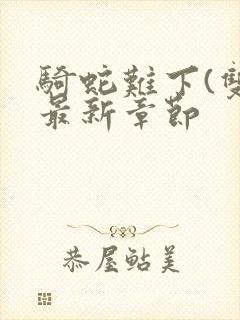 騎蛇難下(雙
最新章節
恭屋鮎美